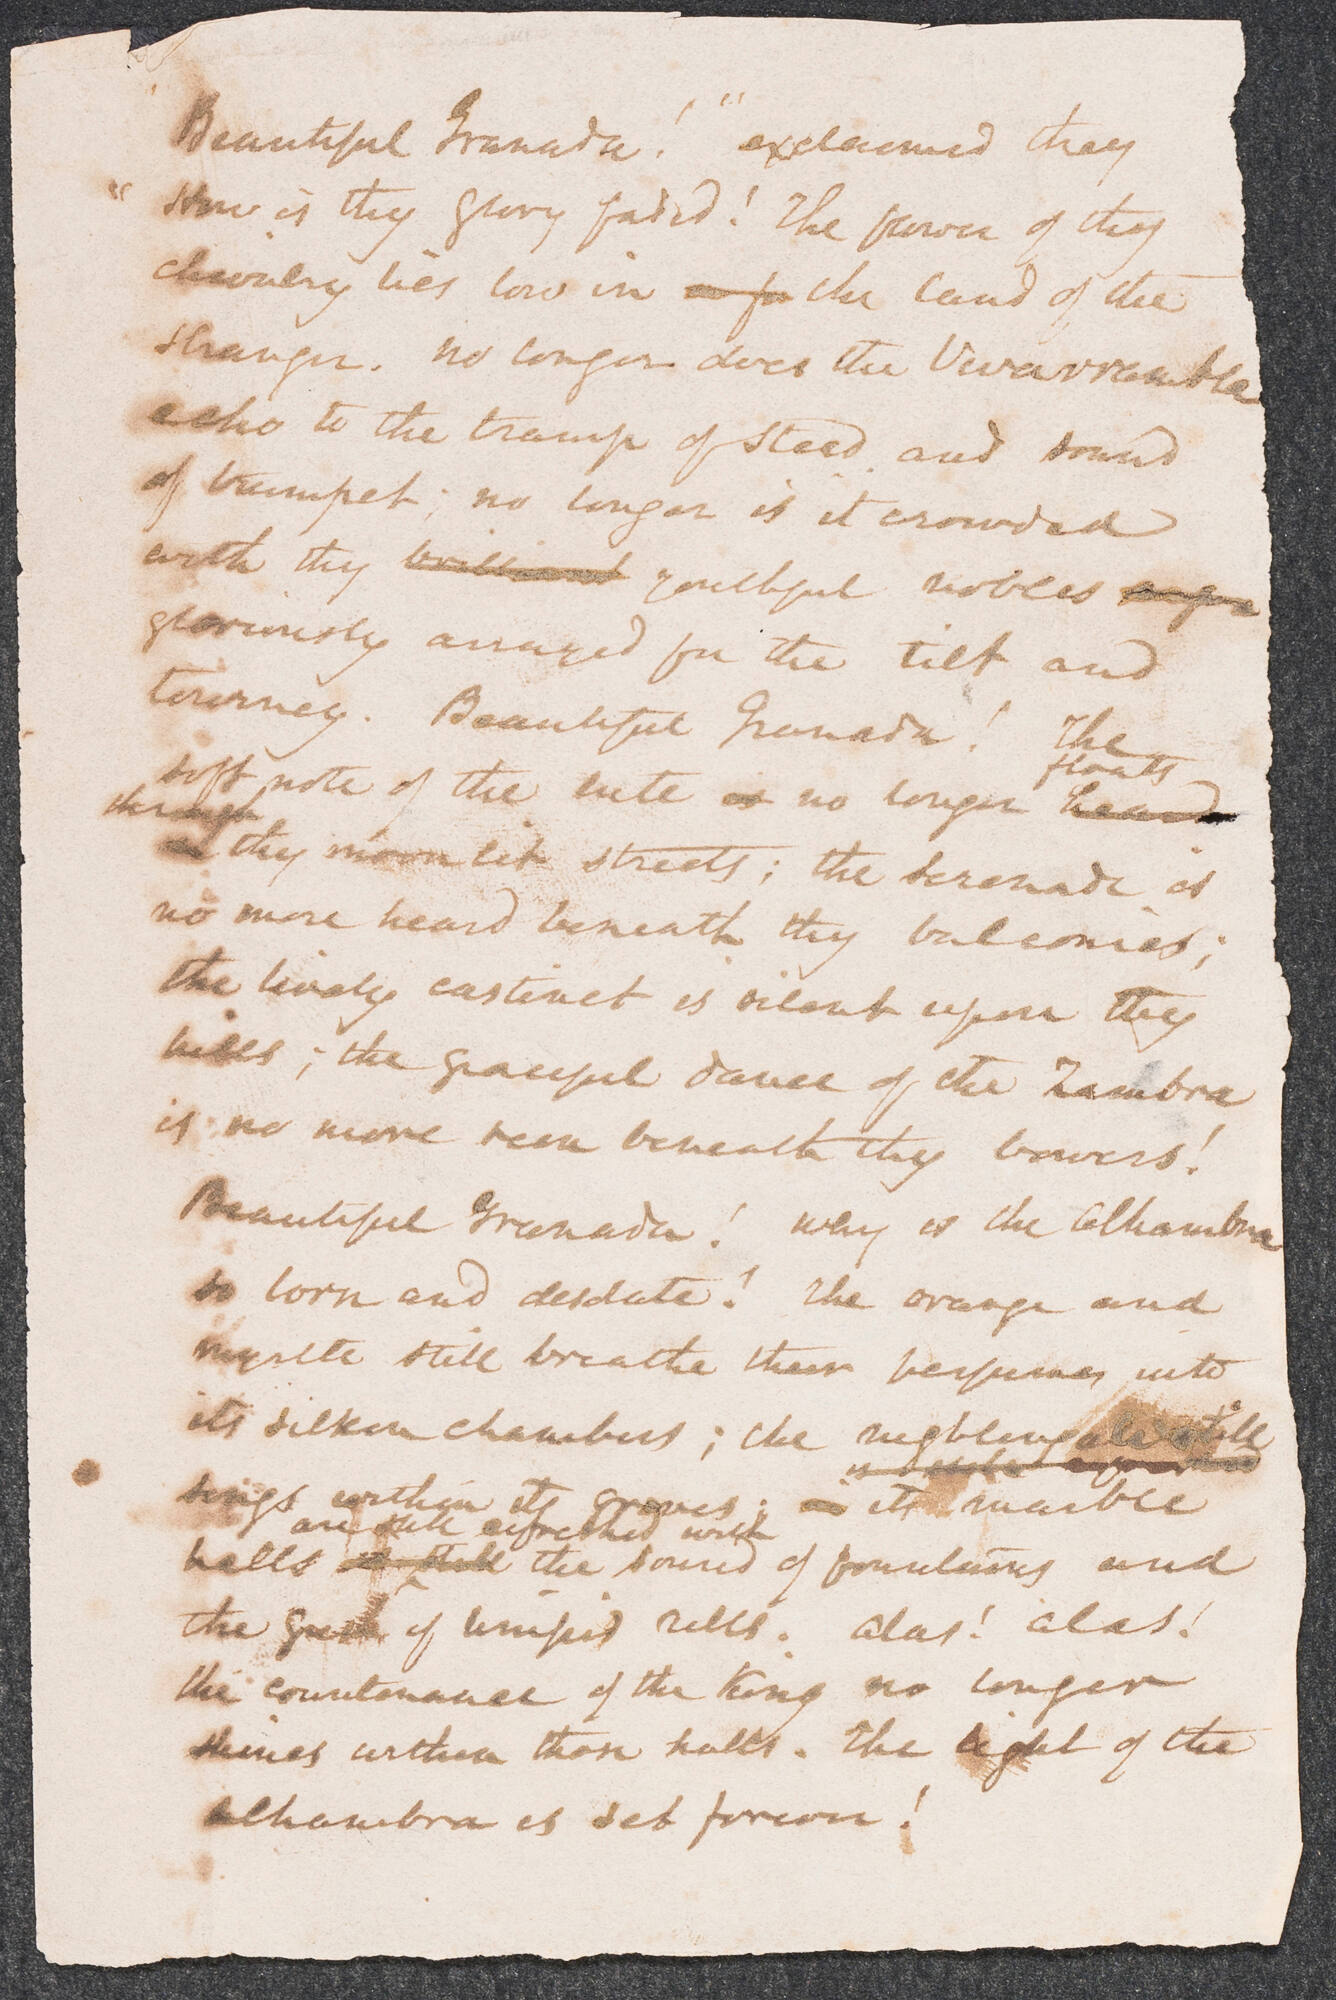 "Beautiful Granada!" exclaimed they
"how is thy glory faded! The flower of thy
chivalry lies low in the land of the
stranger. no longer does the Vivarrambla
echo to the tramp of steed and sound
of trumpet; no longer is it crowded
with thy brilliant youthful nobles
gloriously arrayed for the tilt and
tourney. Beautiful Granada! The
floats
soft note of the lute is no longer heard
through
thy moon lit streets; the serenade is
no more heard beneath thy balconies;
the lively castinet is silent upon thy
hills; the graceful dance of the Zambra
is no more seen beneath thy bowers!
Beautiful Granada! why is the Alhambra
so lorn and desolate! The orange and
myrtle still breathe their perfumes into
its silken chambers; the nightingale still
sings within its groves; its marble
are still refreshed with
halls the sound of fountains and
the gush of limpid rills. Alas! alas!
the countenance of the King no longer
shines within those halls. The light of the
Alhambra is set forever!